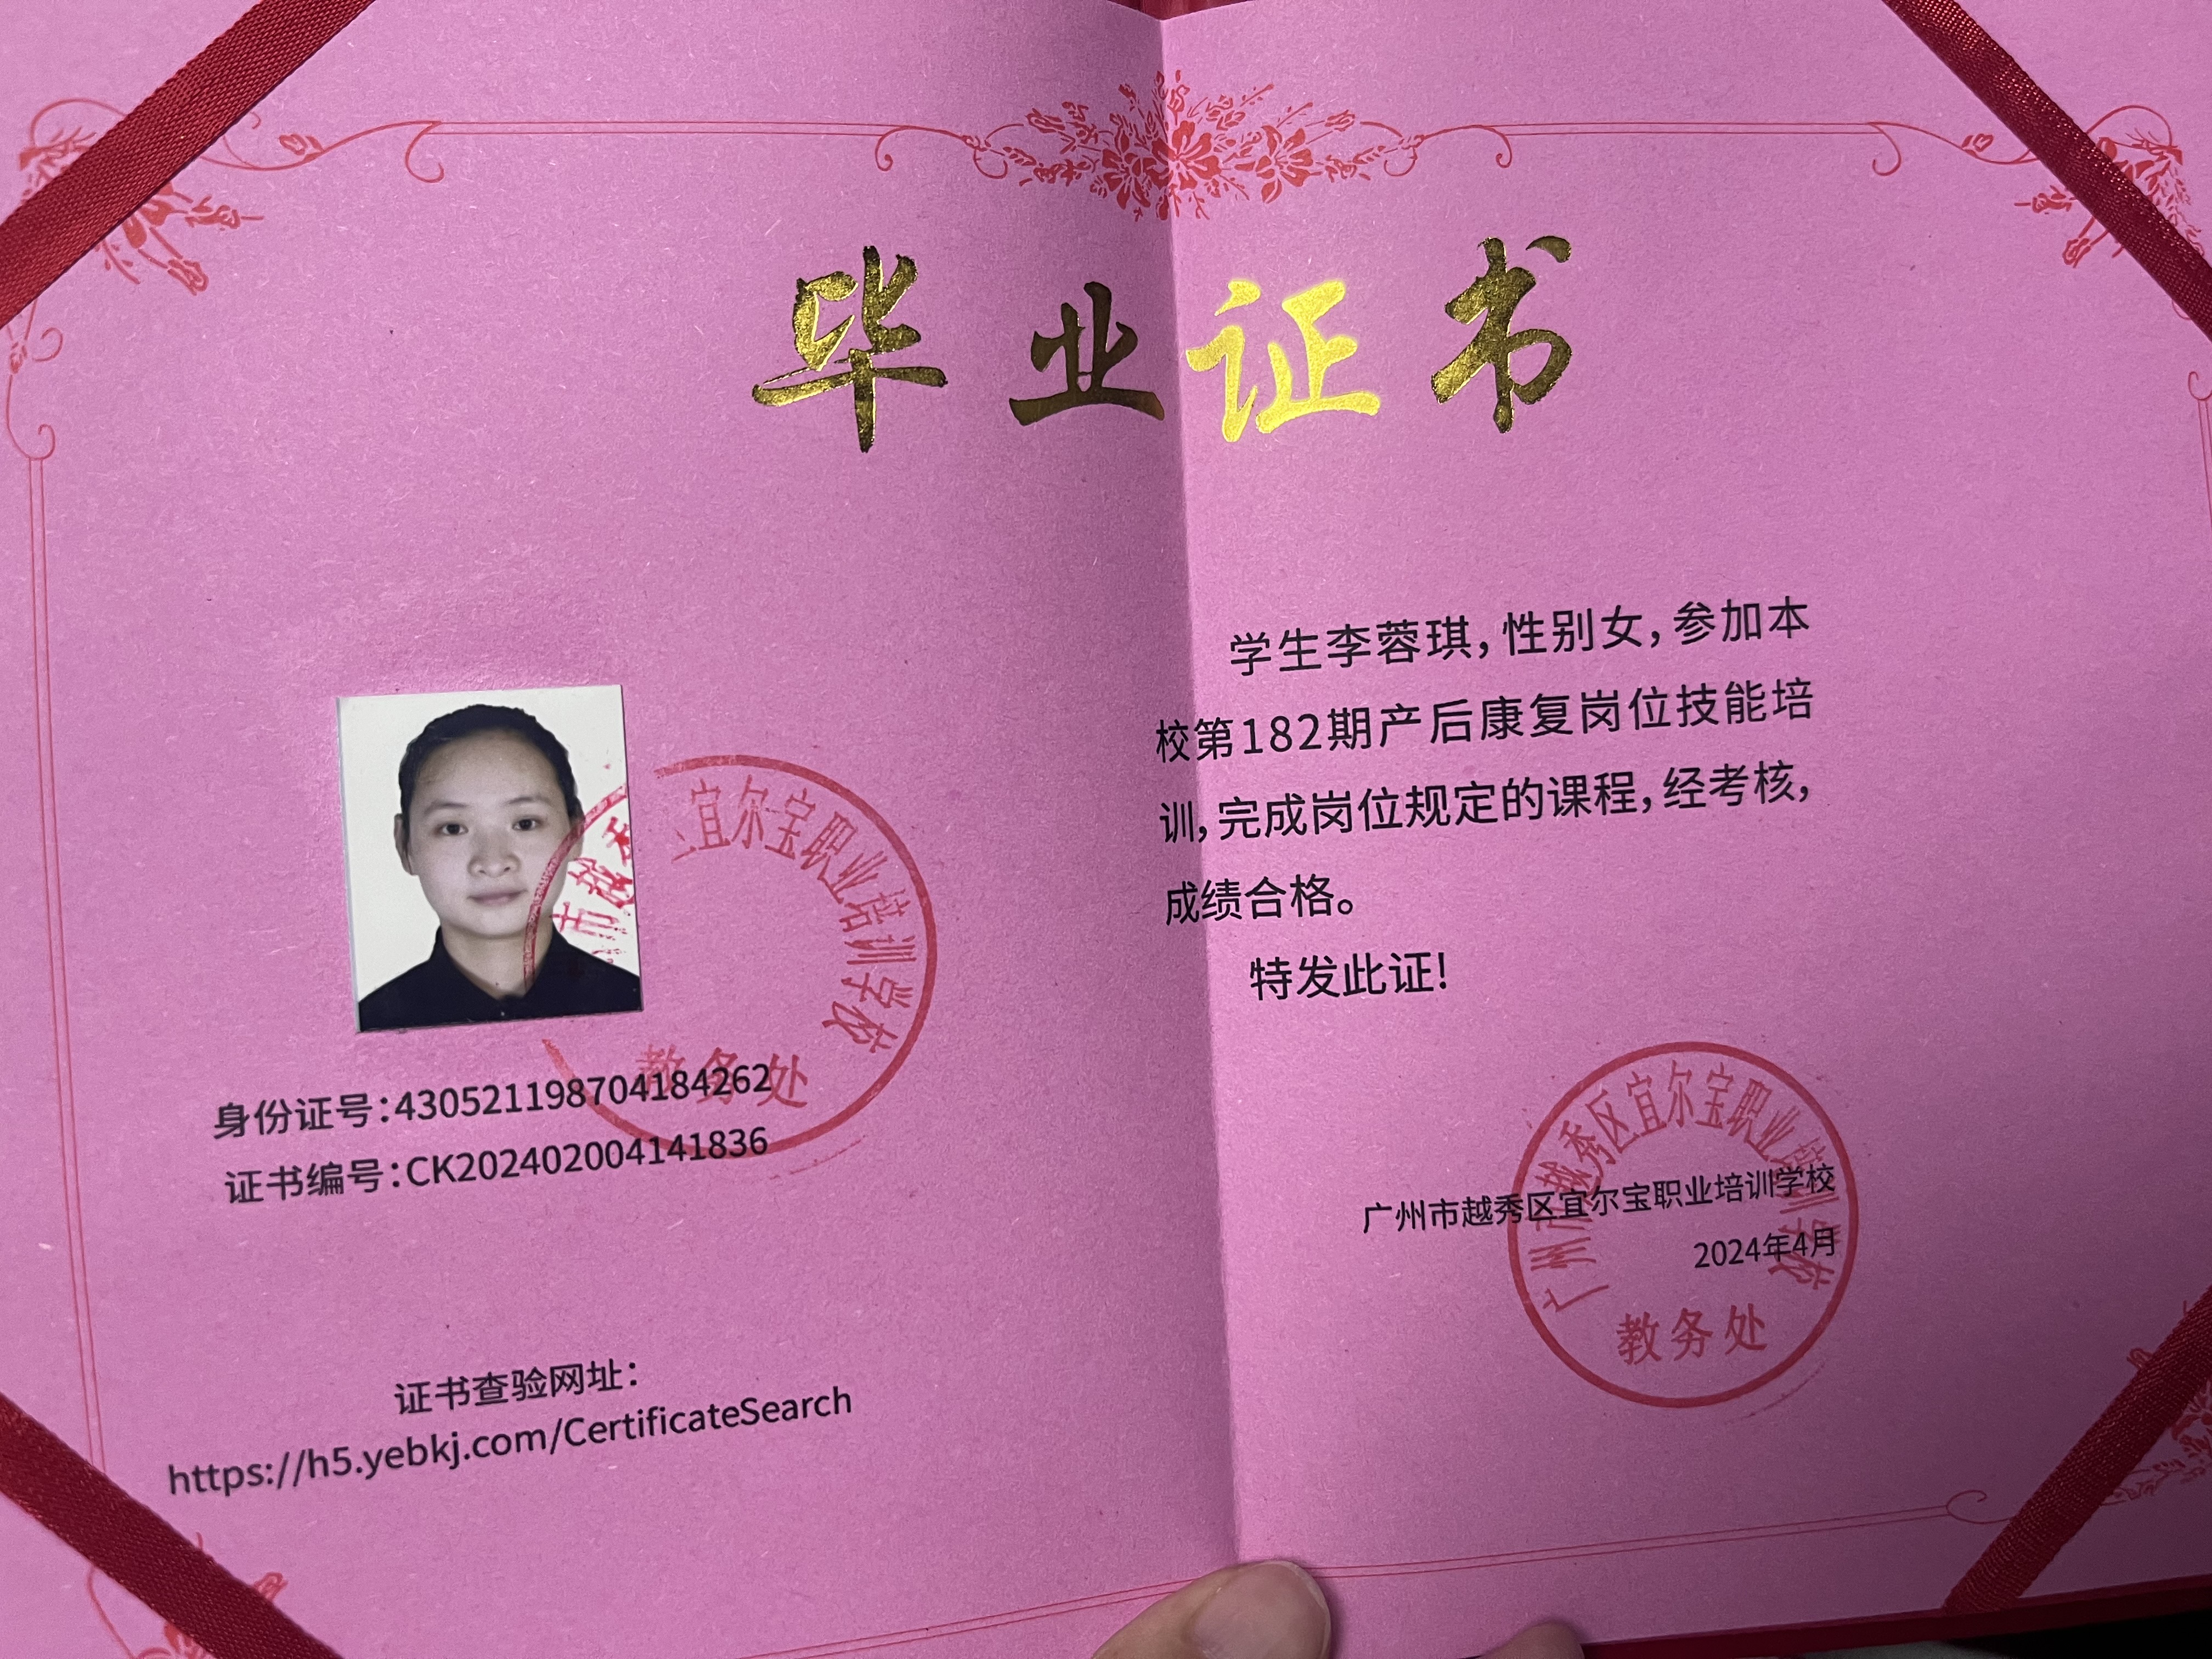 毕业证书
学生李蓉琪，性别女，参加本
校第182期产后康复岗位技能培
训，完成岗位规定的课程，经考核，
成绩合格。
特发此证！
身份证号：430521198704184262
证书编号：CK202402004141836
证书查验网址：
https://h5.yebkj.com/CertificateSearch
宜尔宝职业培训学校
教务处
广州市越秀区宜尔宝职业培训学校
2024年4月
广州市越秀区宜尔宝职业培训学校
教务处